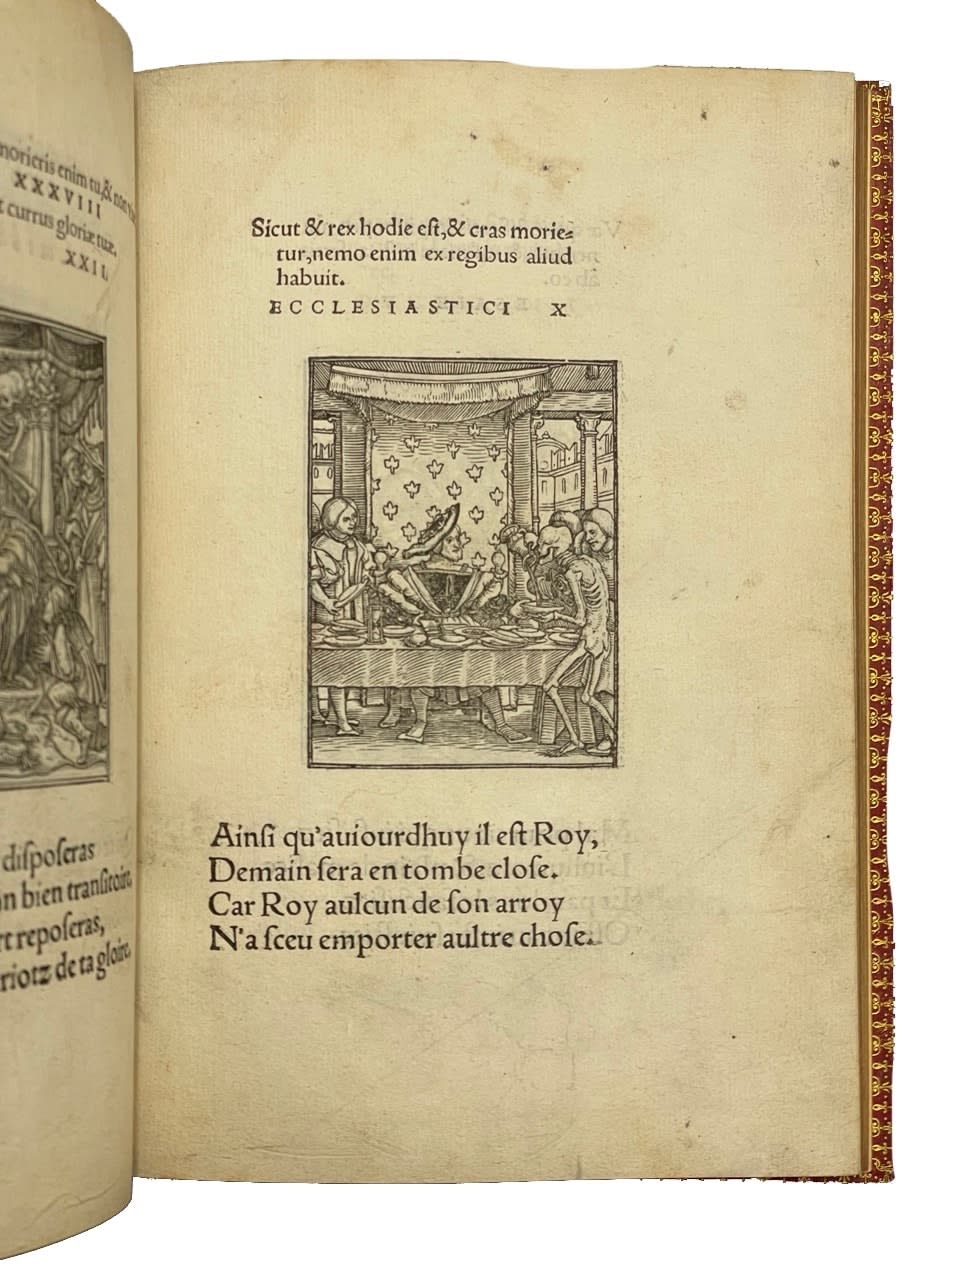 morieris enim tu, & non
XXXVIII
currus gloriæ tuæ,
XXII.
disposeras
bien transitoire,
reposeras,
de ta gloire.
Sicut & rex hodie est, & cras morie-
tur, nemo enim ex regibus aliud
habuit.
ECCLESIASTICI X
Ainsi qu'auiourdhuy il est Roy,
Demain sera en tombe close.
Car Roy aulcun de son arroy
N'a sceu emporter aultre chose.